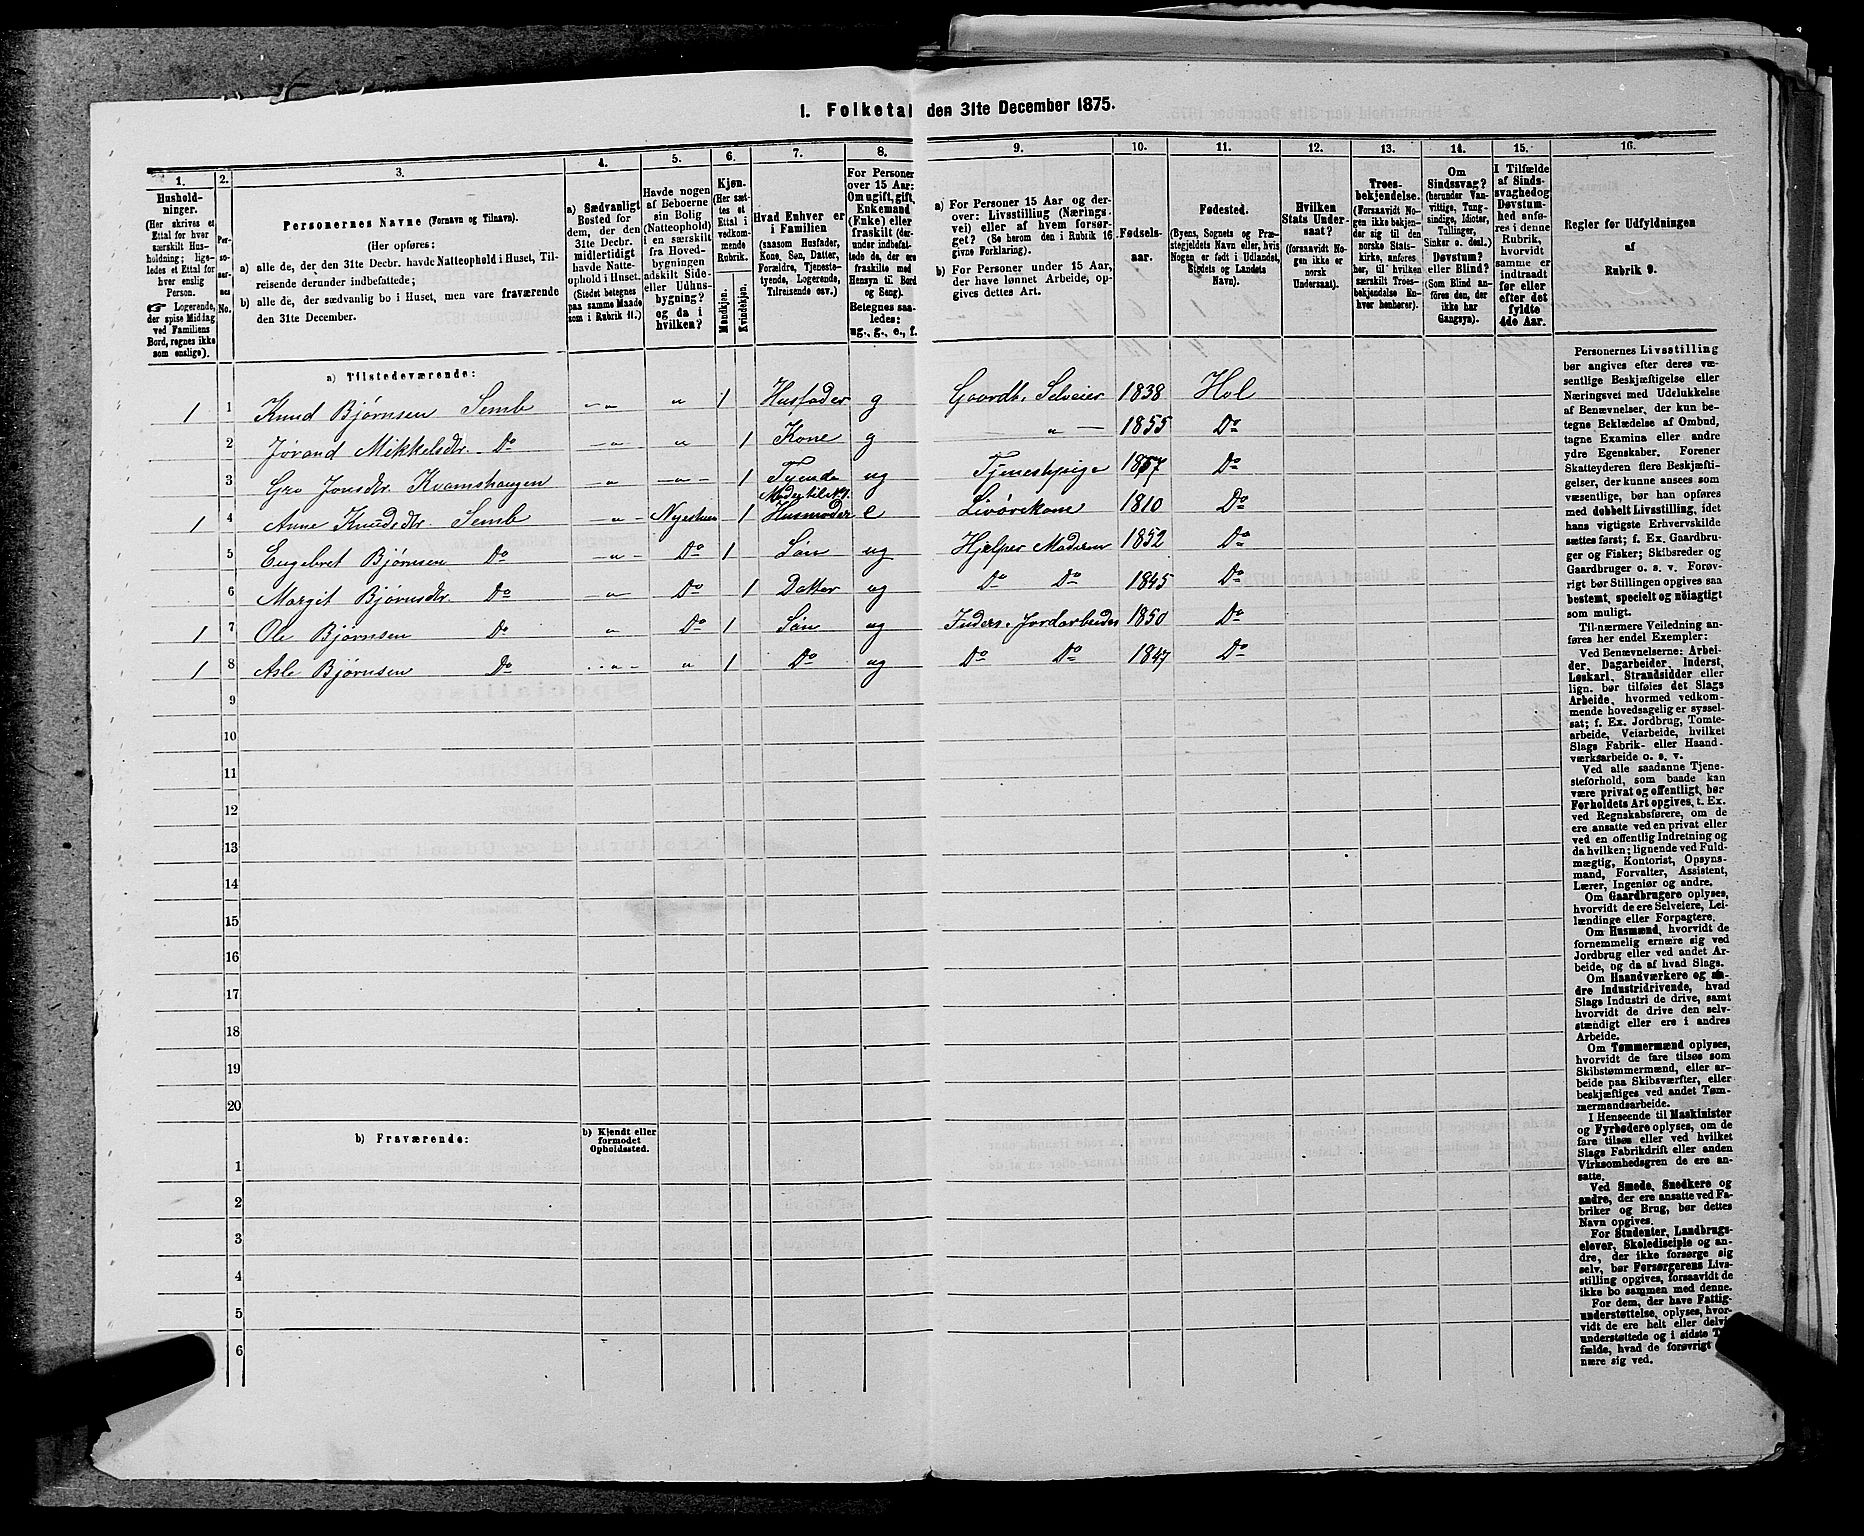 1. Folketal den 31te December 1875.
1. 2. 3. 4. 5. 6. 7. 8. 9. 10. 11. 12. 13. 14. 15. 16.
Husholdninger.
(Her skrives et
Ettal for hver
særskilt Husholdning;
ligeledes et Ettal for
hver enslig
Person.
Logerende,
der spise Middag
ved Familiens
Bord, regnes ikke
som enslige).
Personernes No.
Personernes Navne (Fornavn og Tilnavn).
(Her opføres:
a) alle de, der den 31te Decbr. havde Natteophold i Huset, Tilreisende derunder indbefattede;
b) alle de, der sædvanlig bo i Huset, men vare fraværende
den 31te December.
a) Sædvanligt
Bosted for
dem, der den
31te Decbr.
midlertidigt
havde Natteophold i Huset.
(Stedet betegnes
paa samme Maade
som i Rubrik 11.)
Havde nogen
af Beboerne
sin Bolig
(Natteophold)
i en særskilt
fra Hovedbygningen
adskilt Side- eller Udhusbygning?
og da i
hvilken?
Kjøn.
(Her sættes et
Ettal i
vedkommende
Rubrik.
Mandkjøn.
Kvindekjøn.
Hvad Enhver er
i Familien
(saasom Husfader,
Kone, Søn, Datter,
Forældre, Tjenestetyende, Logerende,
Tilreisende osv.)
For Personer
over 15 Aar:
Om ugift, gift,
Enkemand
(Enke) eller
fraskilt (derunder indbefattede de, der ere
fraskilte med
Hensyn til Bord
og Seng).
Betegnes saaledes:
ug., g., e., f.
a) For Personer 15 Aar og derover: Livsstilling (Næringsvei) eller af hvem forsørget? (Se herom den i Rubrik 16
givne Forklaring).
b) For Personer under 15 Aar,
der have lønnet Arbeide, opgives dettes Art.
Fødselsaar.
Fødested.
(Byens, Sognets og Præstegjeldets Navn eller, hvis
Nogen er født i Udlandet,
Stedets og Landets
Navn).
Hvilken
Stats Undersaat?
(forsaavidt Nogen ikke er
norsk
Undersaat).
Troesbekjendelse.
(Forsaavidt Nogen ikke bekjender sig til den
norske Statskirke, anføres
her, til hvilken
særskilt Troesbekjendelse Enhver henhører).
Om
Sindssvag?
(herunder Vanvittige, Tungsindige, Idioter,
Tullinger,
Sinker o. desl.)
Døvstum?
eller Blind?
(Som Blind anføres den, der
ikke har
Gangsyn).
I Tilfælde
af Sindssvaghed og
Døvstumhed anføres i denne
Rubrik,
hvorvidt
samme er
indtraadt
før eller
efter det
fyldte
4de Aar.
Regler for Udfyldningen
af
Rubrik 9.
a) Tilstedeværende:
1 1 Knud Bjørnsen Semb — „ „ 1 Husfader g Gaardb. Selveier 1838 Hol
2 Jørand Mikkelsdr. Do — „ „ 1 Kone g — „ — 1855 Do
3 Gro Jonsdr Kvamshaugen — „ — „ — 1 Tyende ug Tjenestpige 1857 Do
Moder til No 1.
1 4 Anne Knudsdr. Semb — „ — Nyestuen 1 Husmoder e Livørekone 1810 Do
5 Engebret Bjørnsen Do — „ — Do 1 Søn ug Hjælper Moderen 1852 Do
6 Margit Bjørnsdr. Do — „ Do 1 Datter ug Do Do 1845 Do
1 7 Ole Bjørnsen Do „ Do 1 Søn ug Inders. Jordarbeider 1850 Do
1 8 Asle Bjørnsen Do — „ — „ 1 Do ug Do Do 1847 Do
9
10
11
12
13
14
15
16
17
18
19
20
b) Fraværende:
b) Kjendt eller
formodet
Opholdssted.
1
2
3
4
5
6
Personernes Livsstilling
bør angives efter deres væsentlige Beskjæftigelse eller
Næringsvei med Udelukkelse
af Benævnelser, der kun betegne Beklædelse af Ombud,
tagne Examina eller andre
ydre Egenskaber. Forener
Skatteyderen flere Beskjæftigelser, der kunne ansees som
væsentlige, bør han opføres
med dobbelt Livsstilling, idet
hans vigtigste Erhvervskilde
sættes først; f. Ex. Gaardbruger og Fisker; Skibsreder og
Gaardbruger o. s. v. Forøvrigt bør Stillingen opgives saa
bestemt, specielt og nøiagtigt
som muligt.
Til nærmere Veiledning anføres her endel Exempler:
Ved Benævnelserne: Arbeider, Dagarbeider, Inderst,
Løskarl, Strandsidder eller
lign. bør tilføies det Slags
Arbeide, hvormed vedkommende hovedsagelig er sysselsat; f. Ex. Jordbrug, Tomtearbeide, Veiarbeide, hvilket
Slags Fabrik- eller Haandværksarbeide o. s. v.
Ved alle saadanne Tjenesteforhold, som baade kan
være privat og offentligt, bør
Forholdets Art opgives, t. Ex.
ved Regnskabsførere, om de
ere ansatte ved en privat eller
ved en offentlig Indretning og
da hvilken; lignende ved Fuldmægtig, Kontorist, Opsynsmand, Forvalter, Assistent,
Lærer, Ingeniør og andre.
Om Gaardbrugere oplyses,
hvorvidt de ere Selveiere, Leilændinge eller Forpagtere.
Om Husmænd, hvorvidt de
fornemmelig ernære sig ved
Jordbrug eller ved andet Arbeide, og da af hvad Slags.
Om Haandværkere og andre Industridrivende, hvad
Slags Industri de drive, samt
hvorvidt de drive den selvstændigt eller ere i andres
Arbeide.
Om Tømmermænd oplyses,
hvorvidt de fare tilsøs som
Skibstømmermænd, eller arbeide paa Skibsværfter, eller
beskjæftiges ved andet Tømmermandsarbeide.
I Henseende til Maskinister
og Fyrbødere oplyses, om de
fare tilsøs eller ved hvilket
Slags Fabrikdrift eller anden
Virksomhedsgren de ere ansatte.
Ved Smede, Snedkere og
andre, der ere ansatte ved Fabriker og Brug, bør dettes
Navn opgives.
For Studenter, Landbrugselever, Skoledisciple og andre, der ikke forsørge sig
selv, bør Forsørgerens Livsstilling opgives, forsaavidt de
ikke bo sammen med denne.
For dem, der have Fattigunderstøttelse, oplyses, hvorvidt de ere helt eller delvis
understøttede og i sidste Tilfælde, hvad de forøvrigt
nære sig ved.